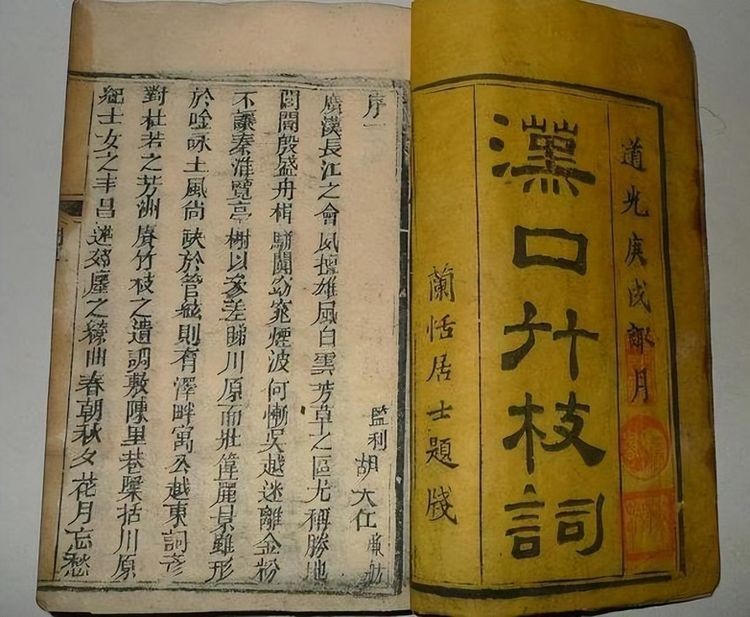 道光庚戌諏月
漢口竹枝詞
蘭恬居士題牋
序一
監利胡大任廉舫
廣漢長江之會夙擅雄風白雲芳草之區尤稱勝地
閭閻殷盛舟楫駢闐窈窕煙波何慚吳越迷離金粉
不讓秦淮覽亭樹以參差睇川原而壯偉麗景雖形
於唫詠土風尚缺於管絃則有澤畔寓公越東詞彥
對杜若之芳洲賡竹枝之遺調敷陳里巷檃括川原
紀士女之丰昌述郊廛之曲春朝秋夕花月忘愁